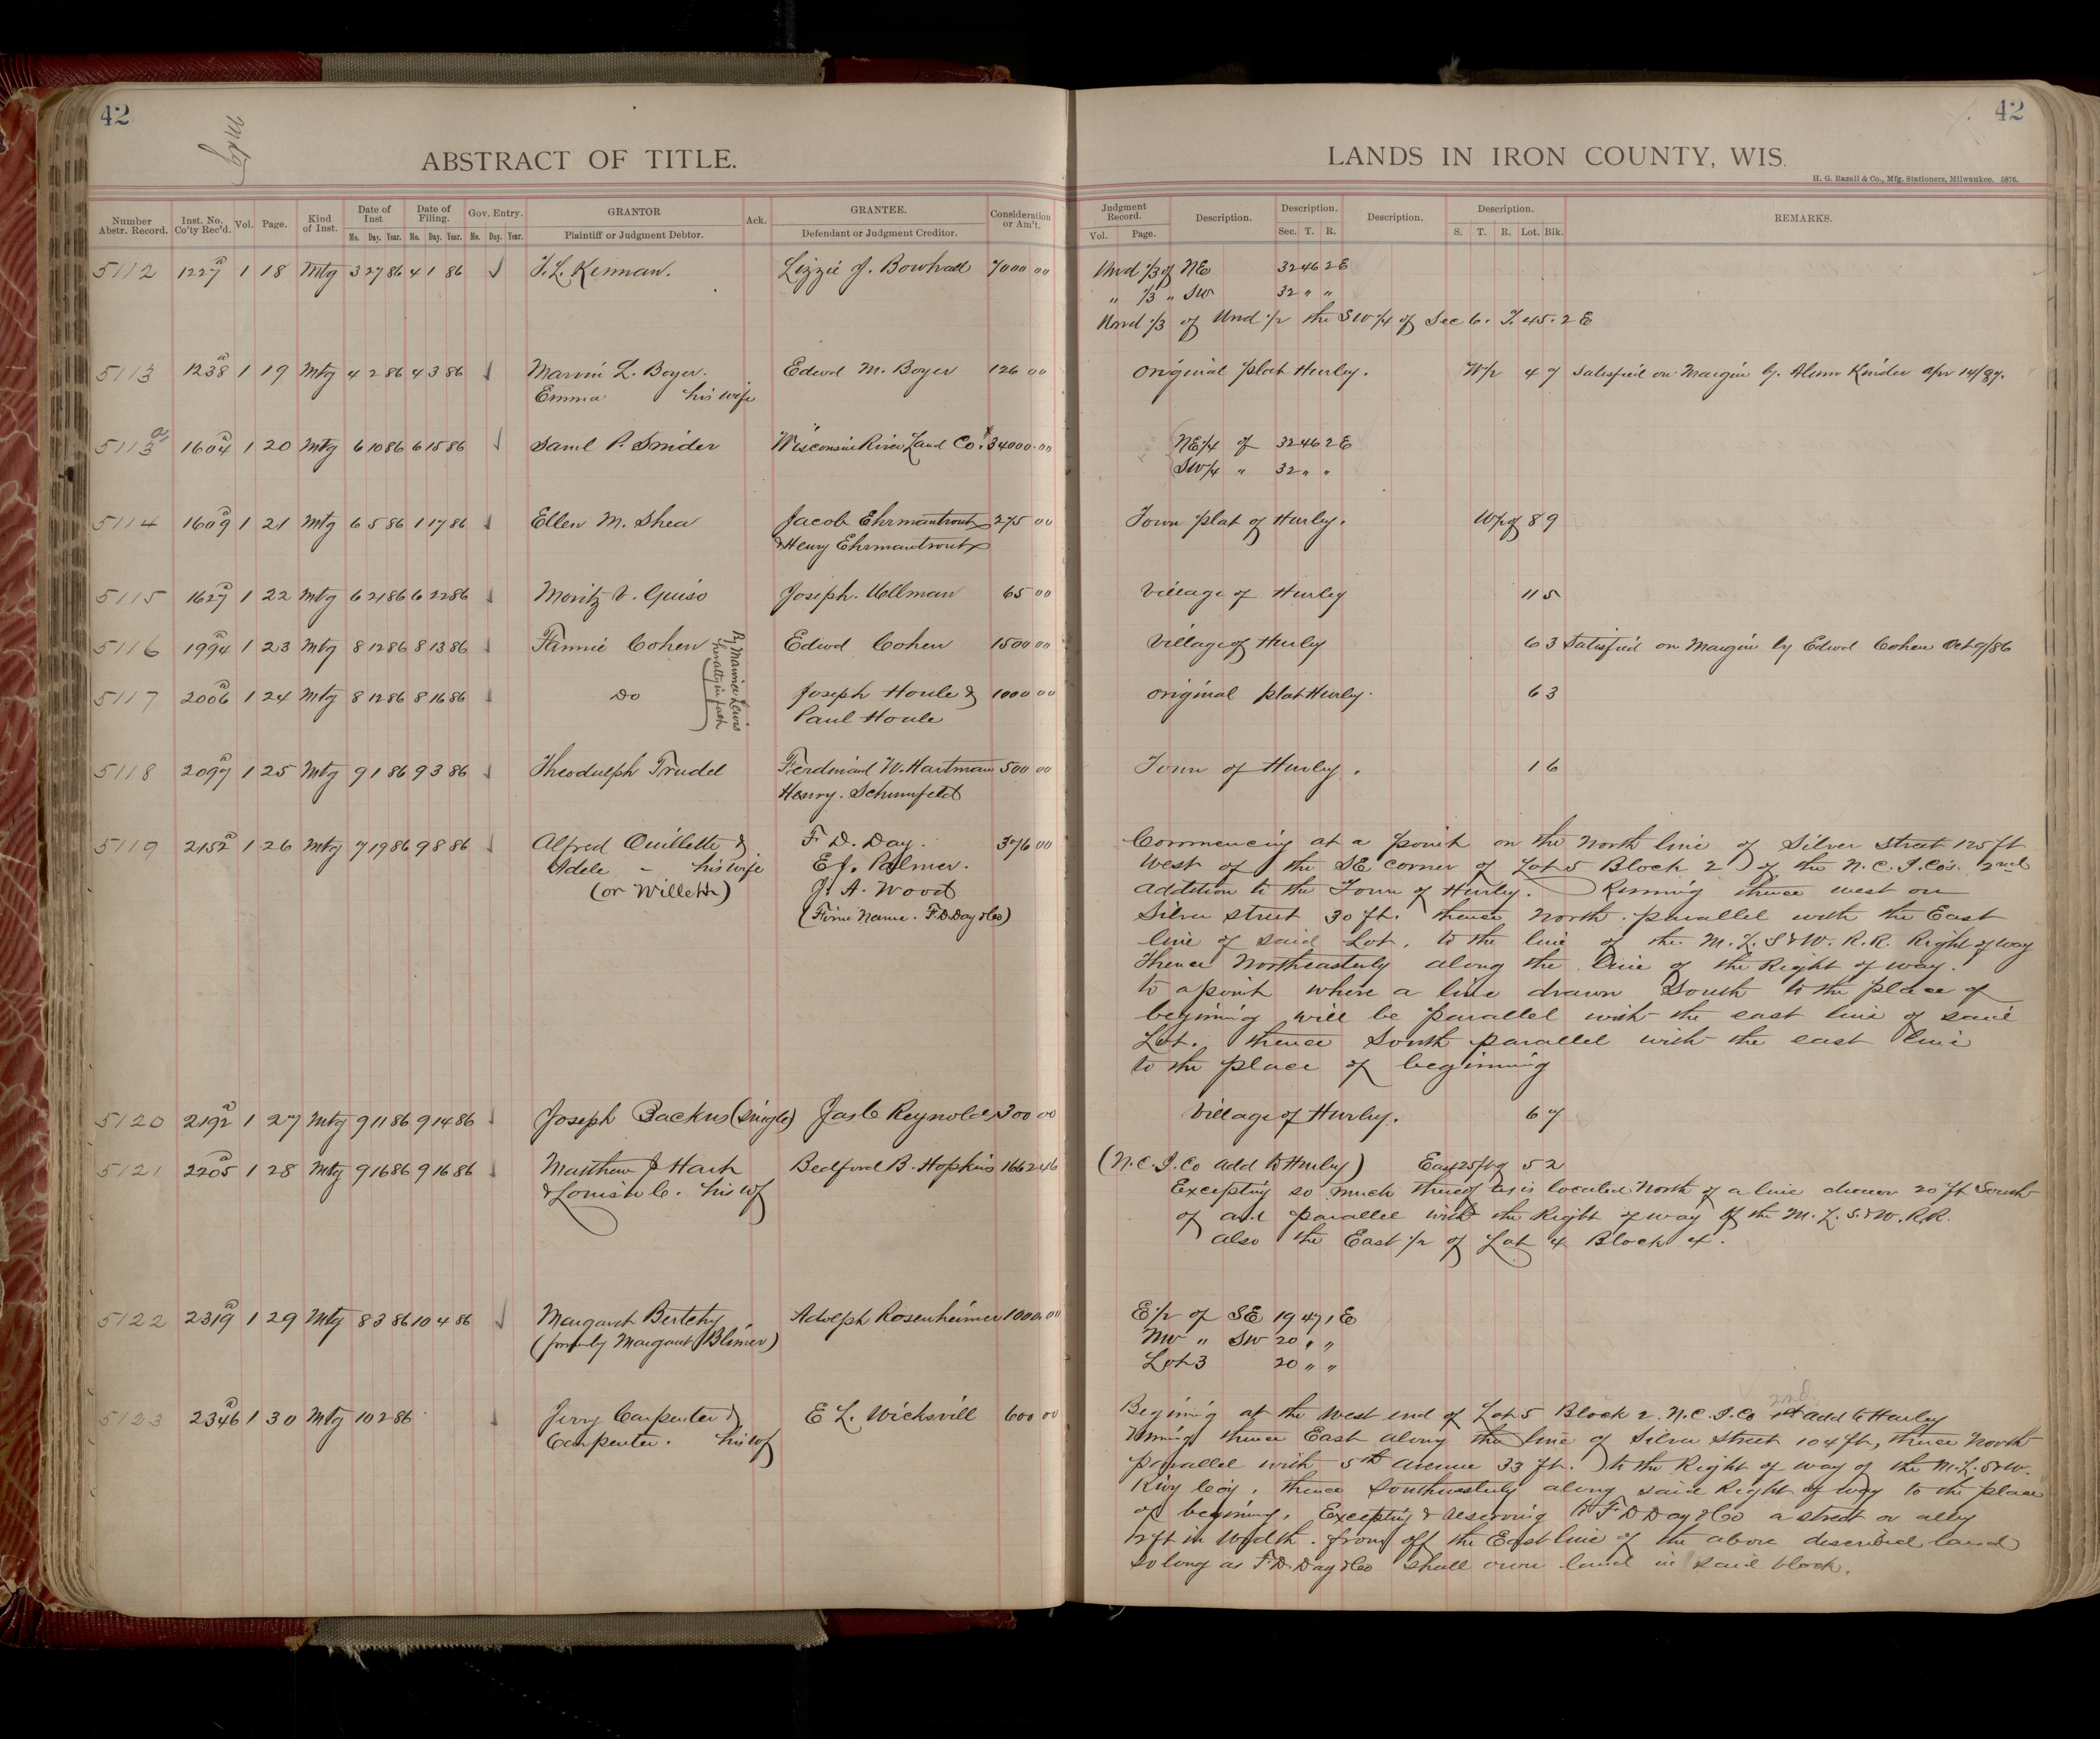 42
Mtg
ABSTRACT OF TITLE.
Number Abstr. Record. Inst. No. Co'ty Rec'd. Vol. Page. Kind of Inst. Date of Inst Mo. Day. Year. Date of Filing. Mo. Day. Year. Gov. Entry. Mo. Day. Year. GRANTOR Plaintiff or Judgment Debtor. Ack. GRANTEE. Defendant or Judgment Creditor. Consideration or Am't.
5112 1227 a 1 18 Mtg 3 27 86 4 1 86 ✓ T. L. Kennan. Lizzie J. 7000 00
5113 1238 a 1 19 Mtg 4 2 86 4 3 86 ✓ Marvin L. Boyer. Edwd M. Boyer 126 00
Emma his wife
5113 a 1604 a 1 20 Mtg 6 10 86 6 15 86 ✓ Saml P. Snider Wisconsin River Land Co. 34000.00
5114 1609 a 1 21 Mtg 6 5 86 1 17 86 ✓ Ellen M. Shea Jacob Ehrmantrout 275 00
& Henry Ehrmantrout
5115 1627 a 1 22 Mtg 6 21 86 6 22 86 ✓ Moritz Joseph. Ullman 65 00
5116 1994 a 1 23 Mtg 8 12 86 8 13 86 ✓ Fannie Cohen Edwd Cohen 1500 00
By Maurice Lewis
her atty in fact
5117 2006 a 1 24 Mtg 8 12 86 8 16 86 ✓ Do Joseph Houle & 1000 00
Paul Houle
5118 2097 a 1 25 Mtg 9 1 86 9 3 86 ✓ Theodulph Trudel Ferdinand W. Hartman 500 00
Henry. Schumfeld
5119 2152 a 1 26 Mtg 7 19 86 9 8 86 ✓ Alfred Ouillette & F. D. Day. 376 00
Adele - his wife E. J. Palmer.
(or Willett) J. A. Wood
(Firm Name. F. D. Day & Co)
5120 2192 a 1 27 Mtg 9 11 86 9 14 86 ✓ Joseph Backus (single) Jas C Reynolds 300 00
5121 2205 a 1 28 Mtg 9 16 86 9 16 86 ✓ Matthew J Hart Bedford B. Hopkins 1662 46
& Louisa C. his wf
5122 2319 a 1 29 Mtg 8 3 86 10 4 86 ✓ Margaret Adolph Rosenheimer 1000.00
(formerly Margaret Blimer)
5123 2346 a 1 30 Mtg 10 2 86 ✓ Jerry Carpenter & E L. Wicksvill 600 00
Carpenter. his wf
42
LANDS IN IRON COUNTY, WIS.
H. G. Razall & Co., Mfg. Stationers, Milwaukee. 5876.
Judgment Record. Vol. Page. Description. Description. Sec. T. R. Description. Description. S. T. R. Lot. Blk. REMARKS.
Unvd 1/3 of NE 32 46 2 E
" 1/3 " SW 32 " "
Unvd 1/3 of Und 1/2 the SW 1/4 of Sec 6. T. 45. 2 E
Original Plat Hurley. W 1/2 4 7 Satisfied on Margin by Apr 14/87.
NE 1/4 of 32 46 2 E
SW 1/4 " 32 " "
Town Plat of Hurley. W 1/2 of 8 9
Village of Hurley 11 5
Village of Hurley 6 3 Satisfied on Margin by Edwd Cohen Oct 9/86
Original Plat Hurley. 6 3
Town of Hurley. 1 6
Commencing at a point on the North line of Silver Street 125 ft
West of the SE corner of Lot 5 Block 2 of the N. C. I. Co's. 2nd
Addition to the Town of Hurley. Running thence west on
Silver street 30 ft. thence North parallel with the East
line of said Lot. to the line of the M. L. S & W. R. R. Right of way
thence Northeasterly along the line of the Right of way.
to a point where a line drawn South to the place of
begining will be parallel with the east line of said
Lot. thence South parallel with the east line
to the place of beginning
Village of Hurley. 6 7
(N. C. I. Co Add to Hurley) East 25 ft of 5 2
Excepting so much thereof as is located North of a line drawn 20 ft South
of and parallel with the Right of way of the M. L. S. & W. R.R.
Also the East 1/2 of Lot 4 Block 4.
E 1/2 of SE 19 47 1 E
NW " SW 20 " "
Lot 3 20 " "
2nd
Begining at the West end of Lot 5 Block 2. N. C. I. Co 1st add to Hurley
runing thence East along the line of Silver Street 104 ft, thence North
parallel with 5th Avenue 33 ft. to the Right of way of the M. L. S & W.
Rwy Coy, thence Southwesterly along said Right of way to the place
of begining. Excepting & reserving to F. D Day & Co a street or alley
12 ft in Width. from off the East line of the above described land
so long as F. D. Day & Co shall own land in said block.